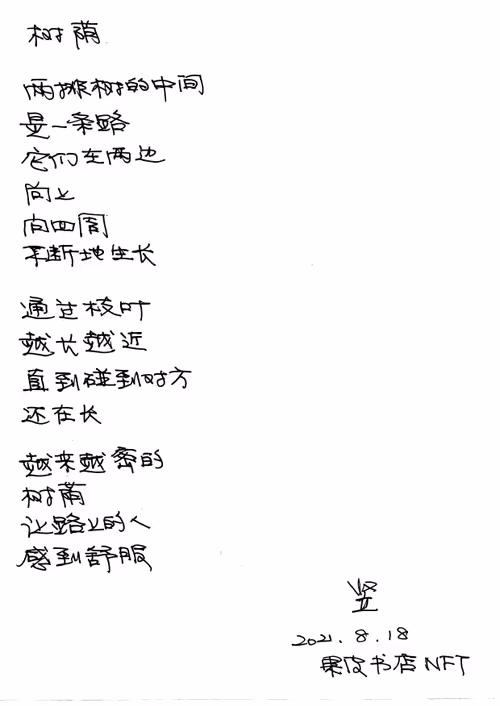 树荫
两排树的中间
是一条路
它们在两边
向上
向四周
不断地生长
通过枝叶
越长越近
直到碰到对方
还在长
越来越密的
树荫
让路上的人
感到舒服
竖
2021.8.18
果皮书店NFT